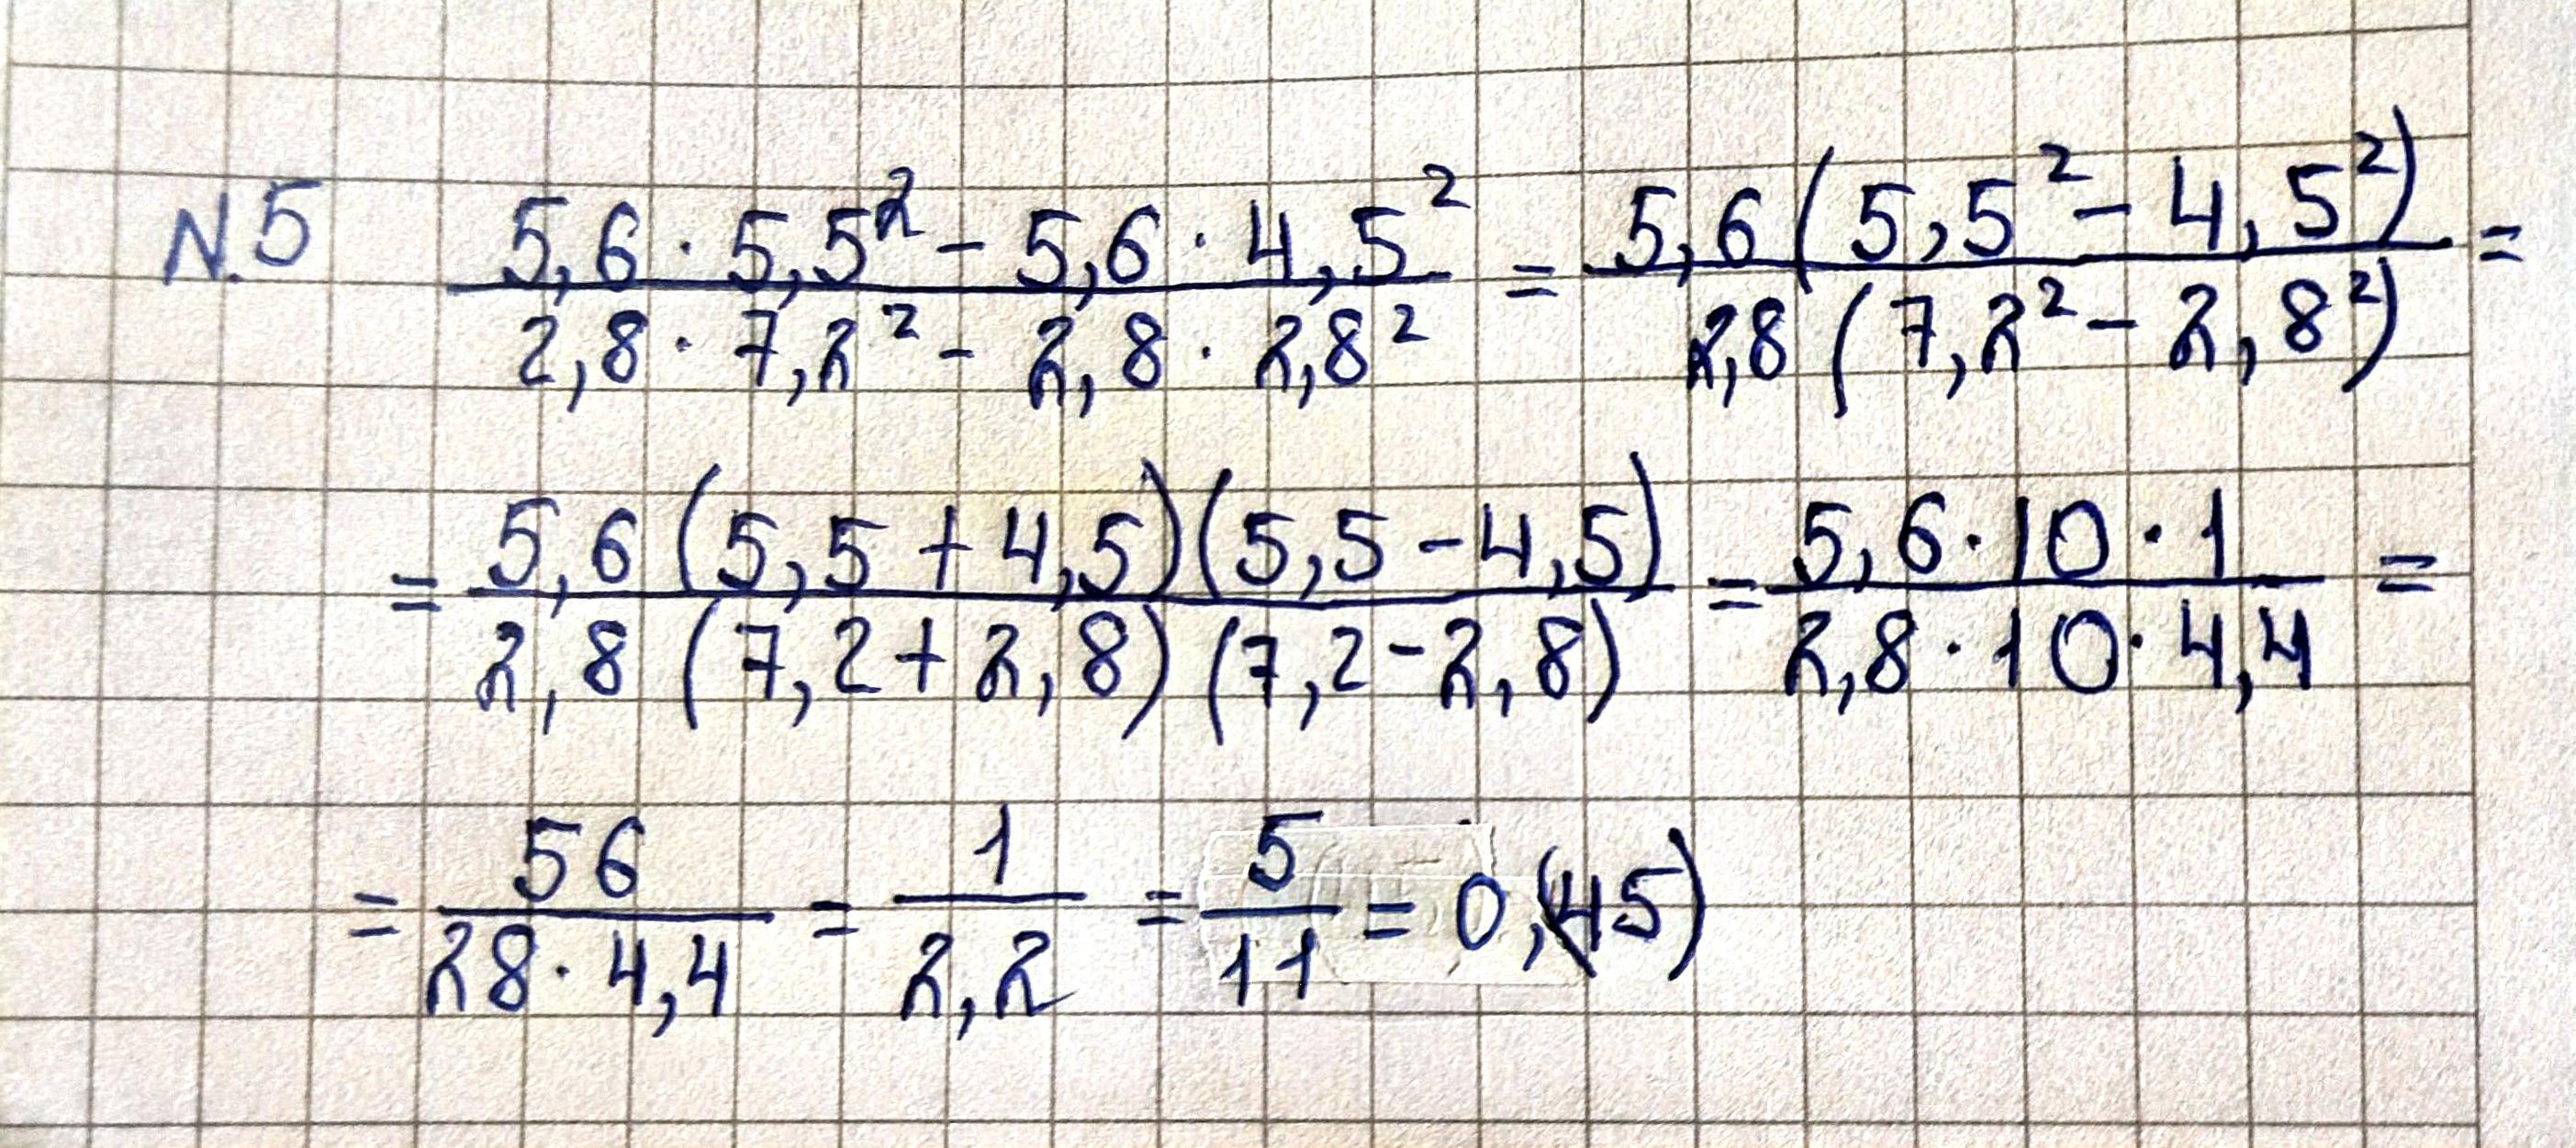 N.5 (5,6 · 5,5² - 5,6 · 4,5²)/(2,8 · 7,2² - 2,8 · 2,8²) = 5,6(5,5² - 4,5²)/2,8(7,2² - 2,8²) =
= 5,6(5,5 + 4,5)(5,5 - 4,5)/2,8(7,2 + 2,8)(7,2 - 2,8) = 5,6 · 10 · 1/2,8 · 10 · 4,4 =
= 56/28 · 4,4 = 1/2,2 = 5/11 = 0,(45)